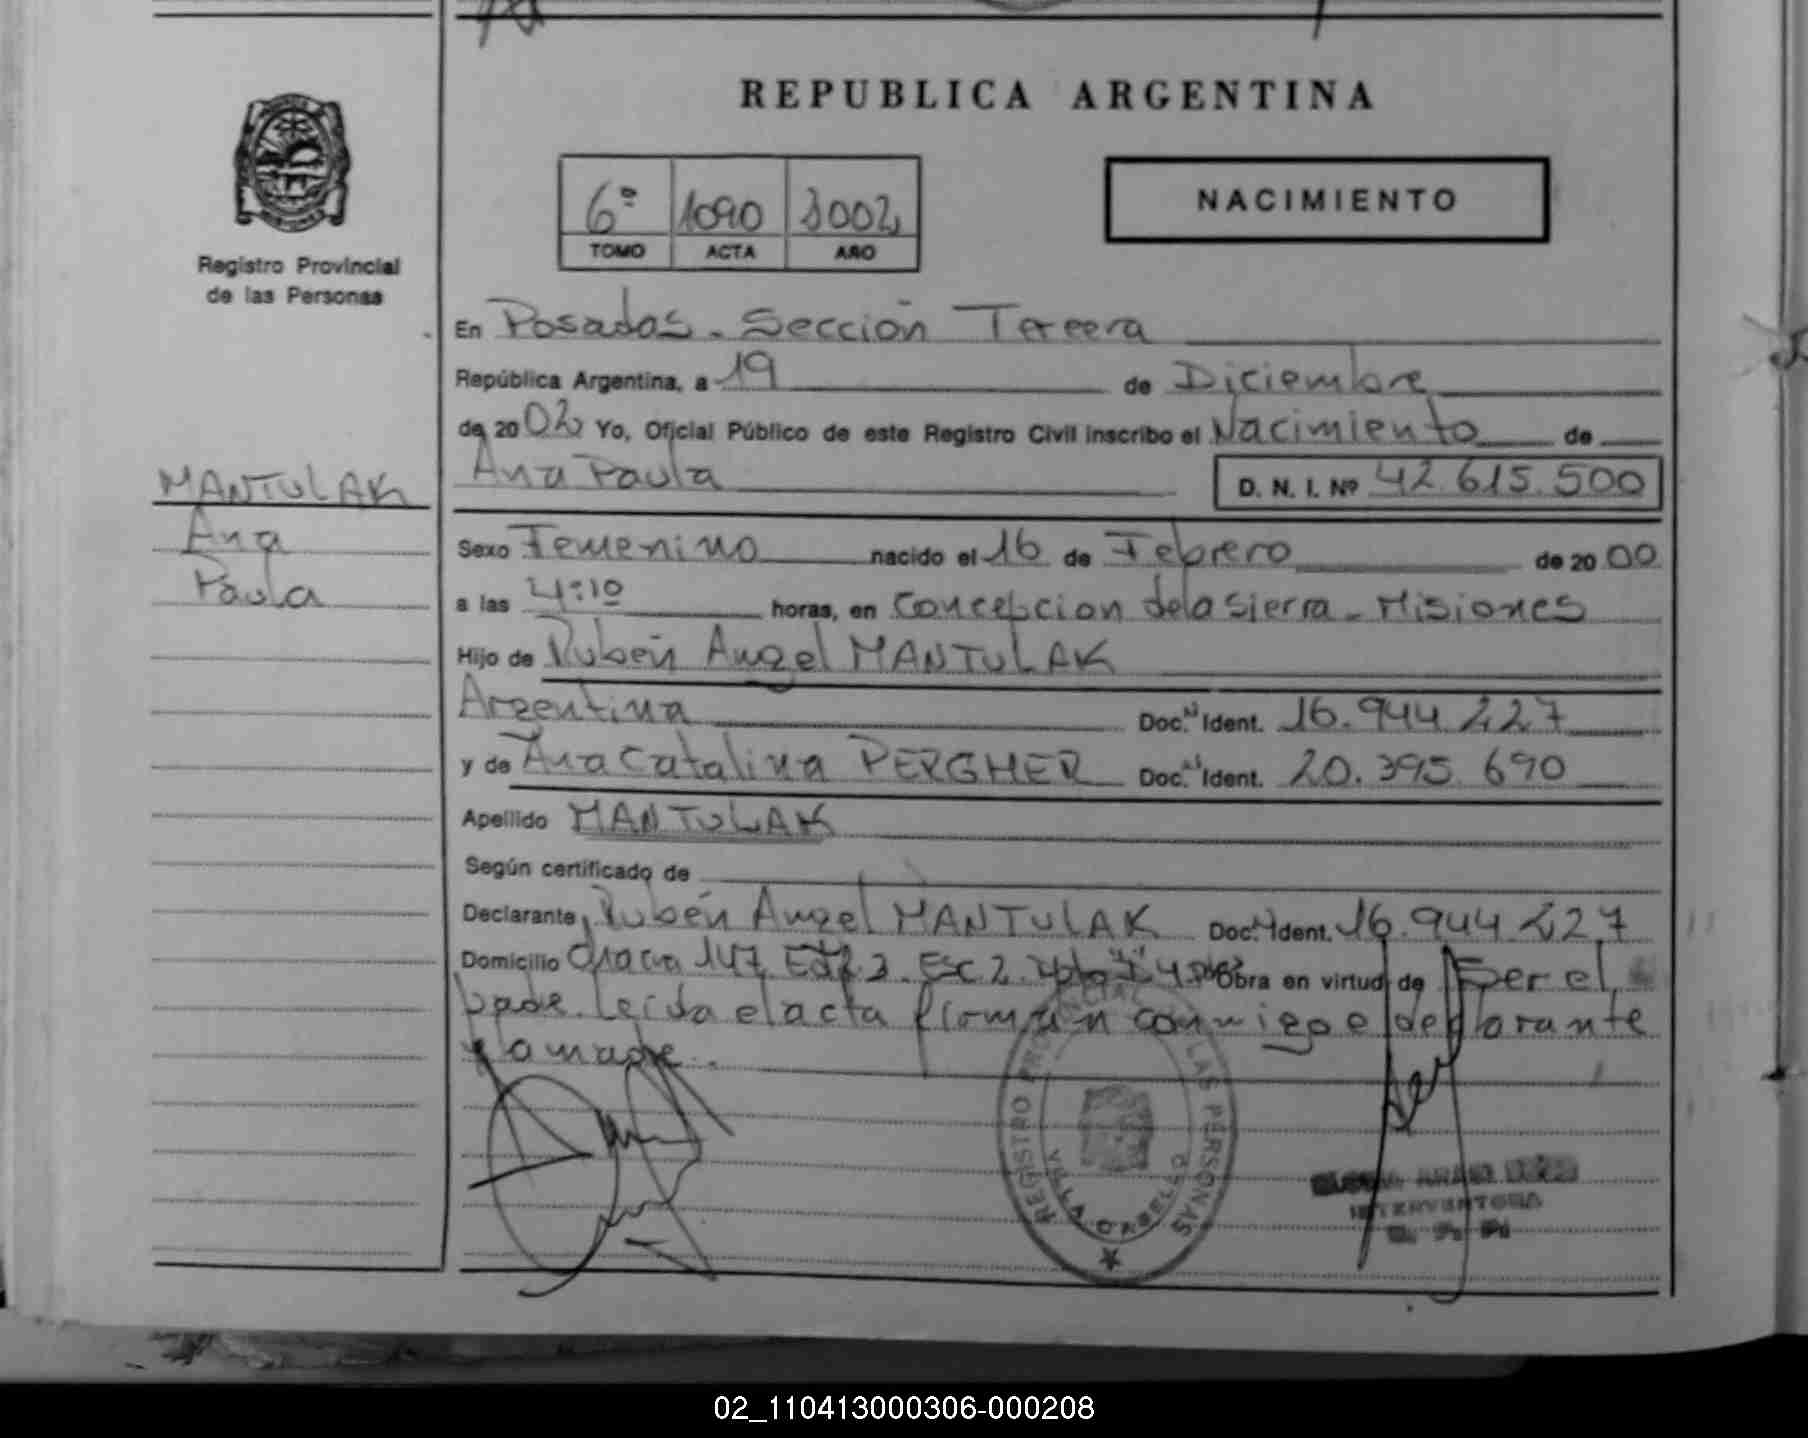 REPUBLICA ARGENTINA
6º 1090 2002
TOMO ACTA AÑO
NACIMIENTO
Registro Provincial
de las Personas
En Posadas - Sección Tercera
República Argentina, a 19 de Diciembre
de 2002 Yo, Oficial Público de este Registro Civil inscribo el Nacimiento de
Ana Paula
D. N. I. Nº 42.615.500
MANTULAK
Ana
Paula
Sexo Femenino nacido el 16 de Febrero de 2000
a las 4:10 horas, en Concepcion de la Sierra - Misiones
Hijo de Rubén Angel MANTULAK
Argentina Doc.N Ident. 16.944.227
y de Ana Catalina PERGHER Doc.N Ident. 20.395.690
Apellido MANTULAK
Según certificado de
Declarante, Rubén Angel MANTULAK Doc.N Ident. 16.944.227
Domicilio Chacra 147 Edf. 3. Esc 2. Obra en virtud de Ser el
padre. Leida el acta firman conmigo el declarante
y la madre.
REGISTRO PROVINCIAL LAS PERSONAS
INTERVENTORA
02_110413000306-000208